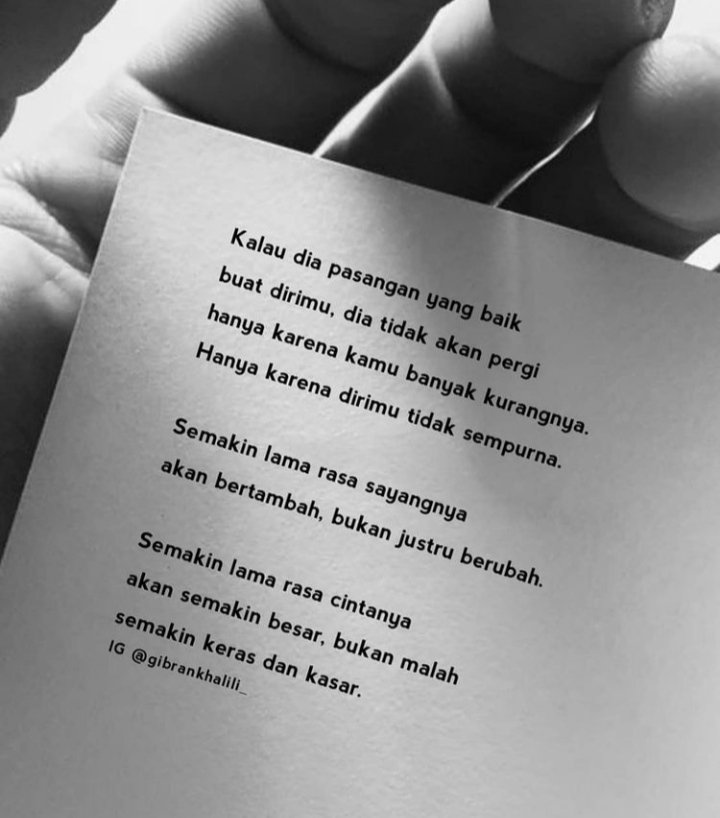 Kalau dia pasangan yang baik
buat dirimu, dia tidak akan pergi
hanya karena kamu banyak kurangnya.
Hanya karena dirimu tidak sempurna.
Semakin lama rasa sayangnya
akan bertambah, bukan justru berubah.
Semakin lama rasa cintanya
akan semakin besar, bukan malah
semakin keras dan kasar.
IG @gibrankhalili_